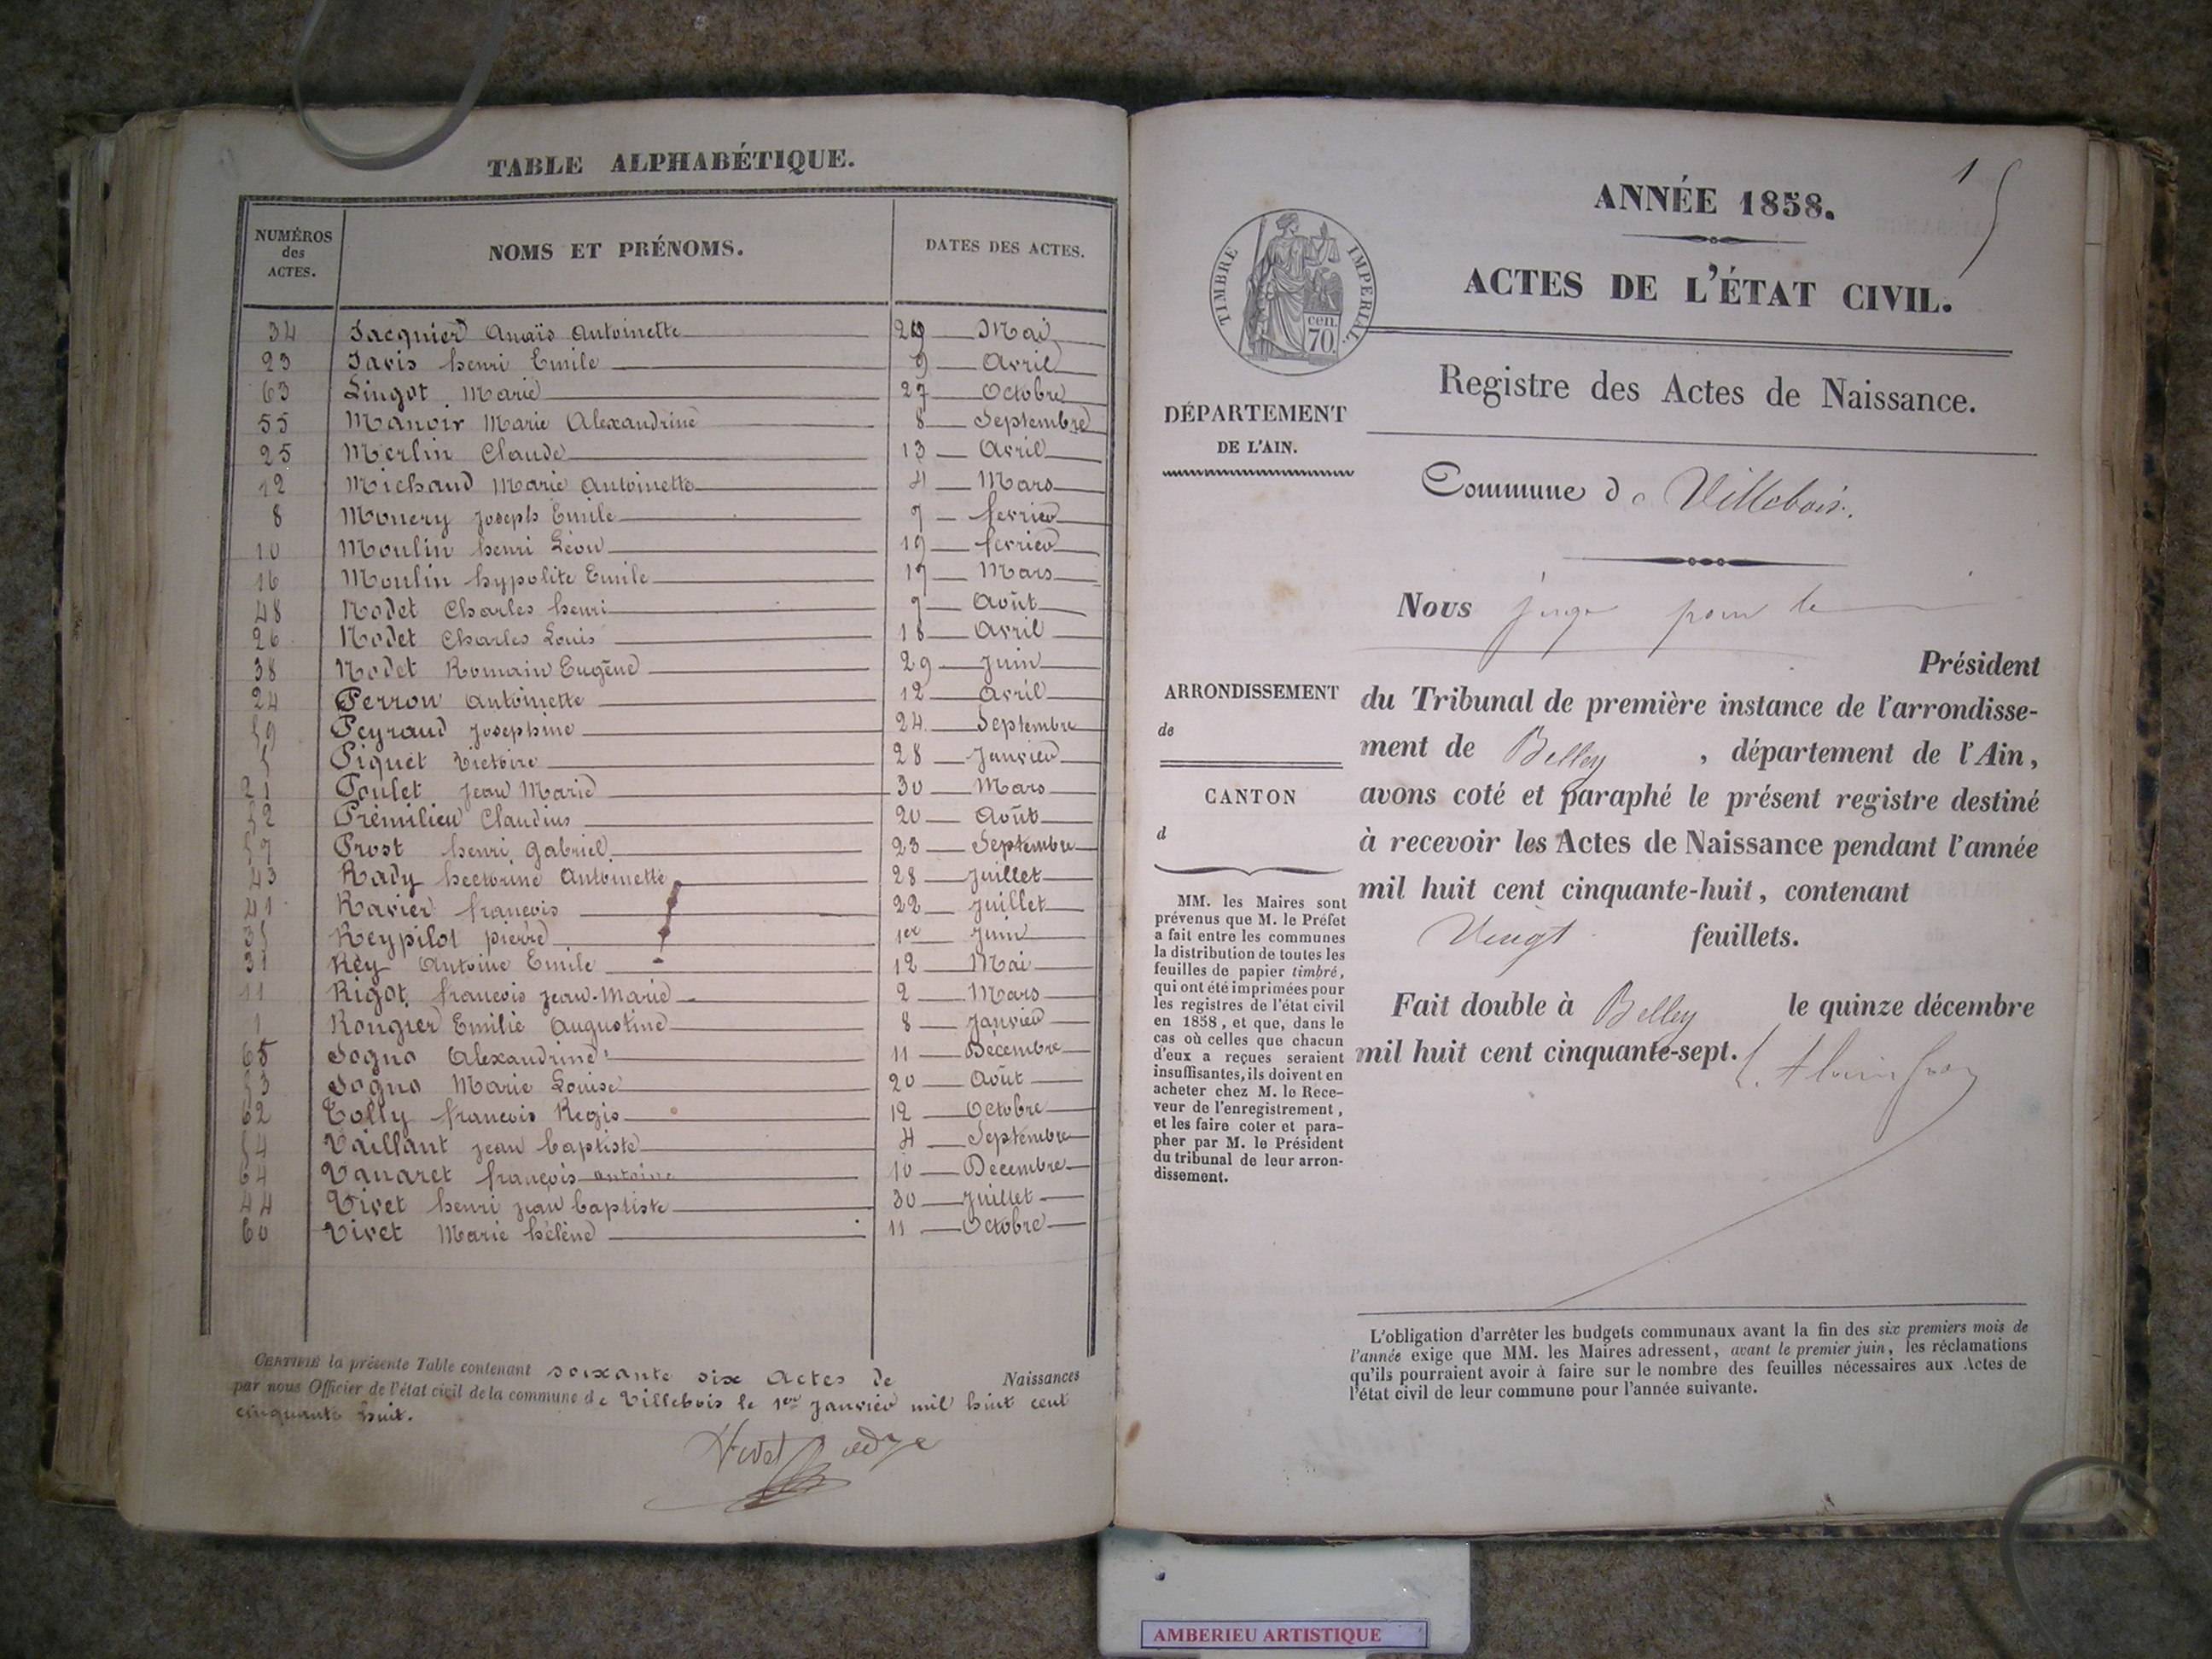 TABLE ALPHABÉTIQUE.
NUMÉROS des ACTES.
NOMS ET PRÉNOMS.
DATES DES ACTES.
34 Jacquier Anaïs Antoinette 29 Mai
23 Javis henri Emile 9 Avril
63 Lingot Marie 27 Octobre
55 Manoir Marie Alexandrine 8 Septembre
25 Merlin Claude 13 Avril
12 Michaud Marie Antoinette 4 Mars
8 Monery Joseph Emile 7 fevrier
10 Moulin henri Léon 19 fevrier
16 Moulin hypolite Emile 17 Mars
48 Nodet Charles henri 7 Août
26 Nodet Charles Louis 18 Avril
38 Nodet Romain Eugène 29 Juin
24 Perron Antoinette 12 Avril
59 Peyraud Josephine 24 Septembre
5 Piquet Victoire 28 Janvier
21 Poulet Jean Marie 30 Mars
52 Prémilieu Claudius 20 Août
57 Prost henri gabriel 23 Septembre
43 Rady hectorine Antoinette 28 Juillet
41 Ravier françois 22 Juillet
35 Reypilot pierre 1er Juin
31 Rey Antoine Emile 12 Mai
11 Rigot françois Jean-Marie 2 Mars
1 Rougier Emilie Augustine 8 Janvier
65 Sogno Alexandrine 11 Décembre
53 Sogno Marie Louise 20 Août
62 Tolly françois Regis 12 Octobre
54 Vaillant Jean baptiste 4 Septembre
64 Vanaret françois antoine 10 Decembre
44 Vivet henri Jean baptiste 30 Juillet
60 Vivet Marie hélène 11 Octobre
CERTIFIÉ la présente Table contenant soixante six actes de Naissances
par nous Officier de l'état civil de la commune de Villebois le 1er Janvier mil huit cent
cinquante huit.
Vivet
1
ANNÉE 1858.
ACTES DE L'ÉTAT CIVIL.
TIMBRE IMPÉRIAL.
cen.
70.
Registre des Actes de Naissance.
DÉPARTEMENT
DE L'AIN.
Commune de Villebois.
Nous juge pour le
Président
ARRONDISSEMENT
de
CANTON
d
du Tribunal de première instance de l'arrondisse-
ment de Belley , département de l'Ain,
avons coté et paraphé le présent registre destiné
à recevoir les Actes de Naissance pendant l'année
mil huit cent cinquante-huit, contenant
Vingt feuillets.
Fait double à Belley le quinze décembre
mil huit cent cinquante-sept.
MM. les Maires sont
prévenus que M. le Préfet
a fait entre les communes
la distribution de toutes les
feuilles de papier timbré,
qui ont été imprimées pour
les registres de l'état civil
en 1858, et que, dans le
cas où celles que chacun
d'eux a reçues seraient
insuffisantes, ils doivent en
acheter chez M. le Rece-
veur de l'enregistrement,
et les faire coter et para-
pher par M. le Président
du tribunal de leur arron-
dissement.
L'obligation d'arrêter les budgets communaux avant la fin des six premiers mois de
l'année exige que MM. les Maires adressent, avant le premier juin, les réclamations
qu'ils pourraient avoir à faire sur le nombre des feuilles nécessaires aux Actes de
l'état civil de leur commune pour l'année suivante.
AMBERIEU ARTISTIQUE